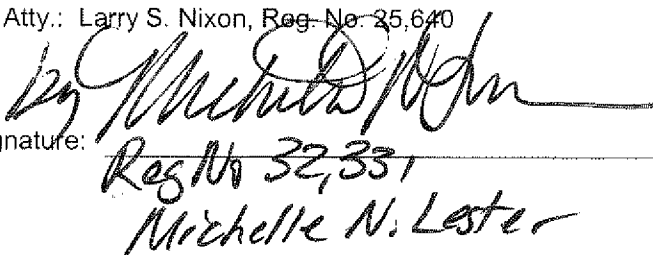 Atty.: Larry S. Nixon, Reg. No. 25,640
by
gnature:
Reg No 32,331
Michelle N. Lester